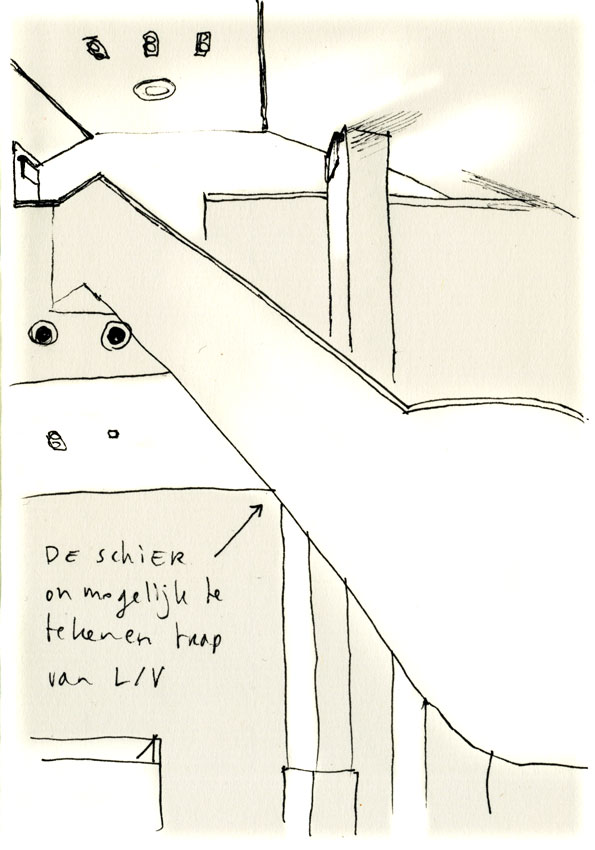 DE schiER
onmogelijk te
tekenen trap
van L/V